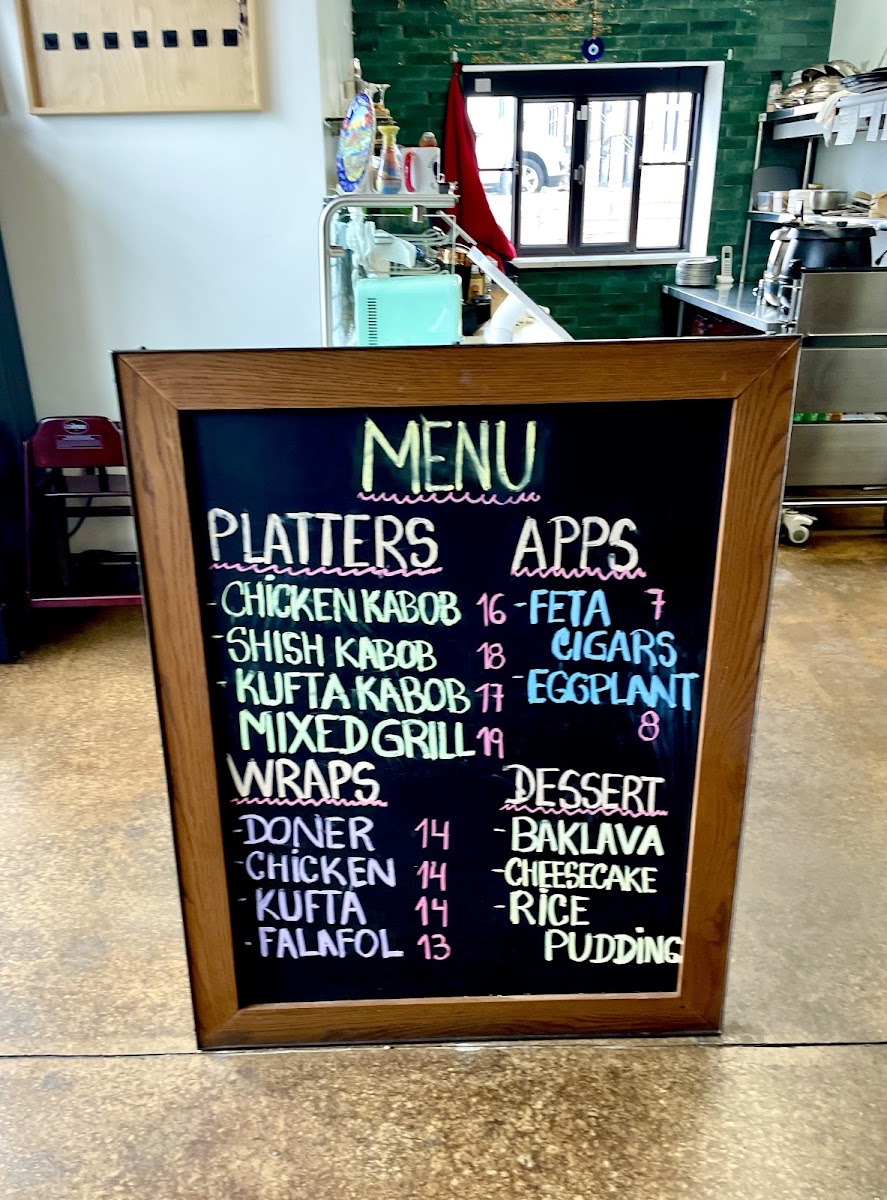 MENU
PLATTERS
-CHICKEN KABOB 16
-SHISH KABOB 18
-KUFTA KABOB 17
MIXED GRILL 19
WRAPS
-DONER 14
-CHICKEN 14
-KUFTA 14
-FALAFOL 13
APPS
-FETA 7
CIGARS
-EGGPLANT
8
DESSERT
-BAKLAVA
-CHEESECAKE
-RICE
PUDDING